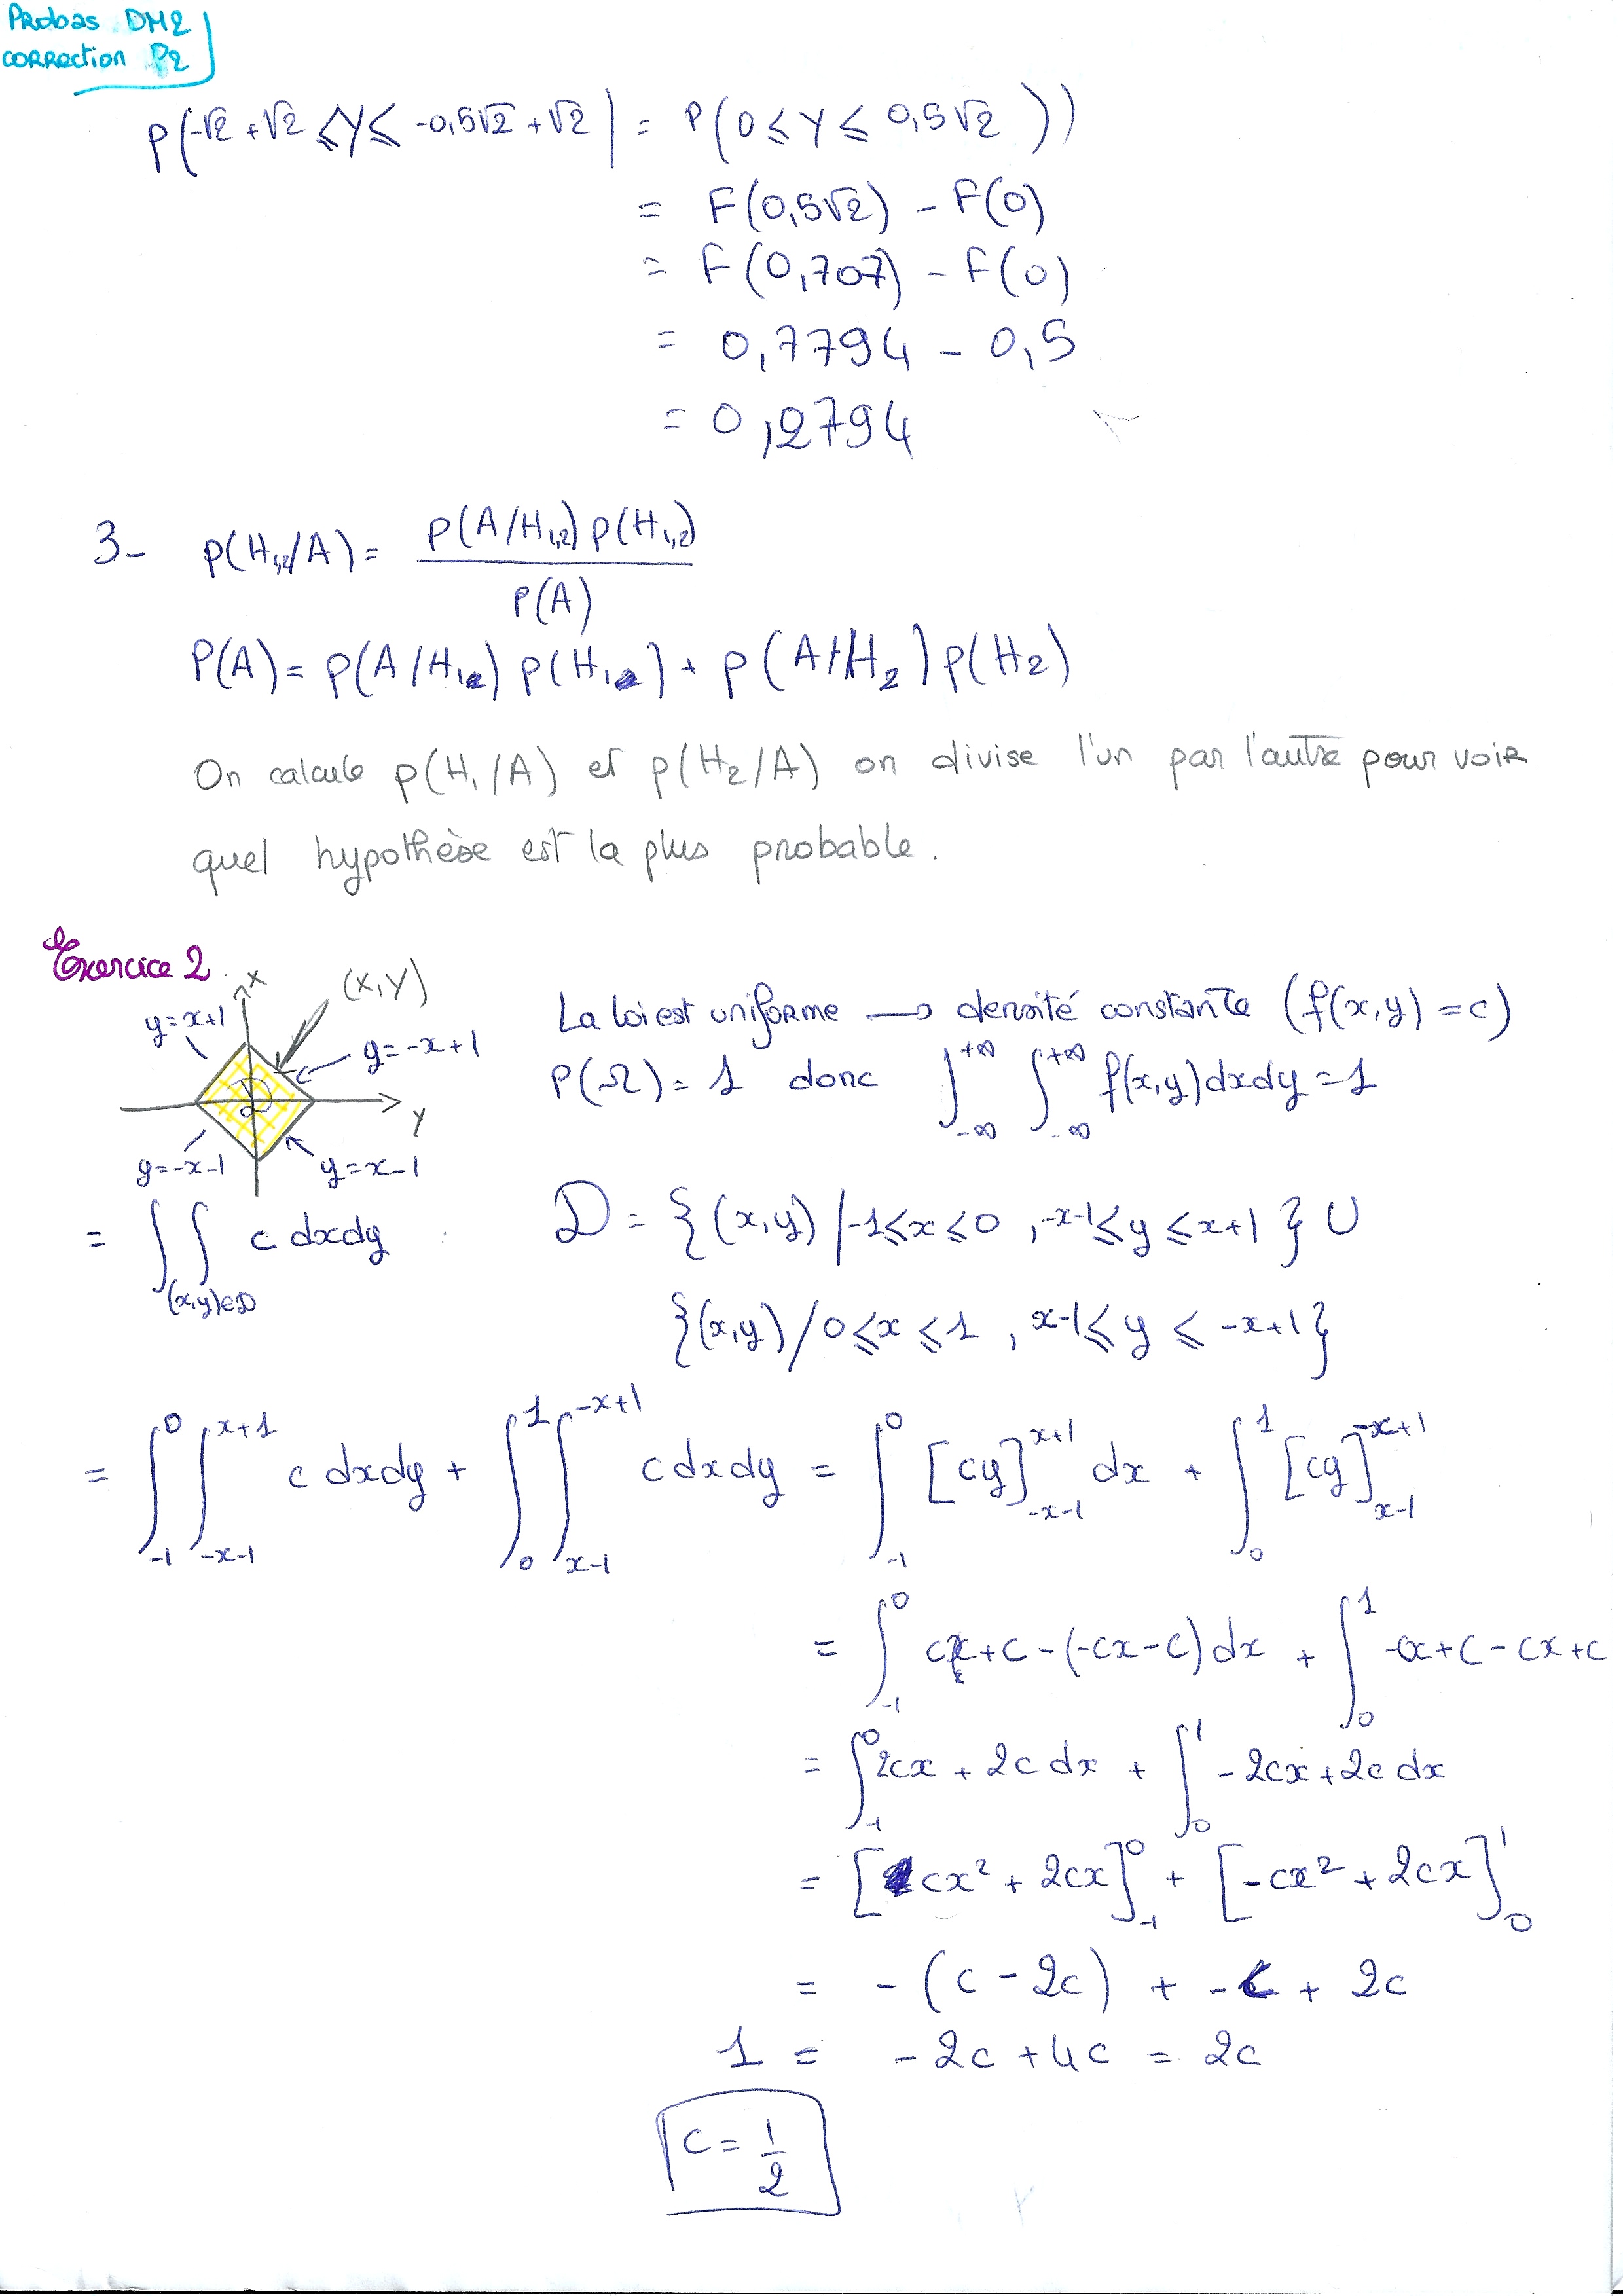 Probas DM2
correction P2
P(-√2 + √2 ⩽ Y ⩽ -0,5√2 + √2) = P(0 ⩽ Y ⩽ 0,5√2))
= F(0,5√2) - F(0)
= F(0,707) - F(0)
= 0,7794 - 0,5
= 0,2794
3- P(H₁,₂/A) = P(A/H₁,₂) P(H₁,₂) / P(A)
P(A) = P(A/H₁) P(H₁) + P(A/H₂) P(H₂)
On calcule P(H₁/A) et P(H₂/A) on divise l'un par l'autre pour voir
quel hypothèse est la plus probable.
Exercice 2
X
(X,Y)
y=x+1
y=-x+1
D
Y
y=-x-1
y=x-1
La loi est uniforme → densité constante (f(x,y) = c)
P(Ω) = 1 donc ∫_{-∞}^{+∞} ∫_{-∞}^{+∞} f(x,y)dxdy = 1
= ∫∫_{(x,y)∈D} c dxdy
D = {(x,y) / -1⩽x⩽0 , -x-1⩽y⩽x+1} U
{(x,y) / 0⩽x⩽1 , x-1⩽y⩽-x+1}
= ∫_{-1}^{0} ∫_{-x-1}^{x+1} c dxdy + ∫_{0}^{1} ∫_{x-1}^{-x+1} c dxdy = ∫_{-1}^{0} [cy]_{-x-1}^{x+1} dx + ∫_{0}^{1} [cy]_{x-1}^{-x+1}
= ∫_{-1}^{0} cx+c-(-cx-c) dx + ∫_{0}^{1} -cx+c-cx+c
= ∫_{-1}^{0} 2cx + 2c dx + ∫_{0}^{1} -2cx+2c dx
= [cx² + 2cx]_{-1}^{0} + [-cx² + 2cx]_{0}^{1}
= -(c - 2c) + -c + 2c
1 = -2c + 4c = 2c
c = 1/2